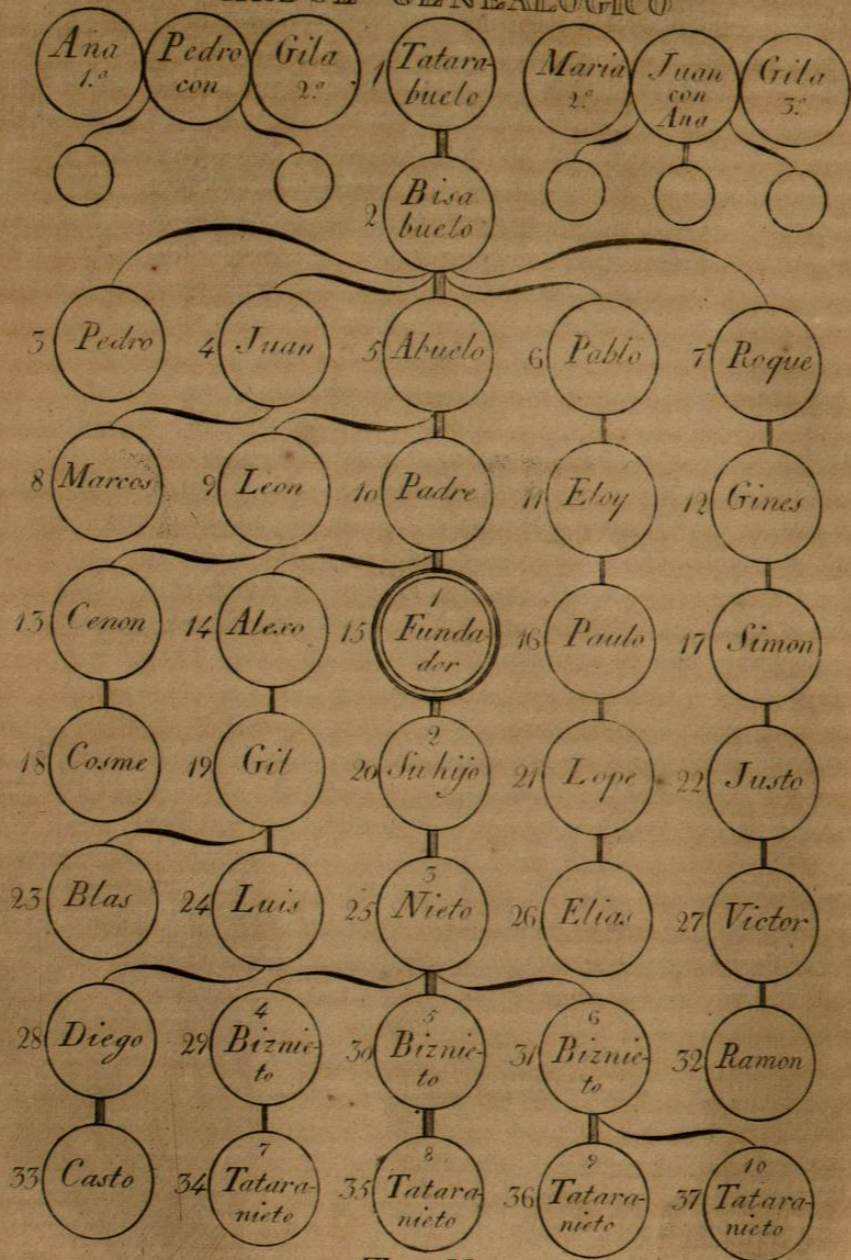 ARBOL GENEALOGICO
Ana
1.ª
Pedro
con
Gila
2.ª
1
Tatara-
buelo
Maria
2.ª
Juan
con
Ana
Gila
3.ª
2
Bisa
buelo
3 Pedro
4 Juan
5 Abuelo
6 Pablo
7 Roque
8 Marcos
9 Leon
10 Padre
11 Eloy
12 Gines
13 Cenon
14 Alexo
15
1
Funda-
dor
16 Paulo
17 Simon
18 Cosme
19 Gil
20
2
Su hijo
21 Lope
22 Justo
23 Blas
24 Luis
25
3
Nieto
26 Elias
27 Victor
28 Diego
29
4
Biznie-
to
30
5
Biznie-
to
31
6
Biznie-
to
32 Ramon
33 Casto
34
7
Tatara-
nieto
35
8
Tatara-
nieto
36
9
Tatara-
nieto
37
10
Tatara-
nieto